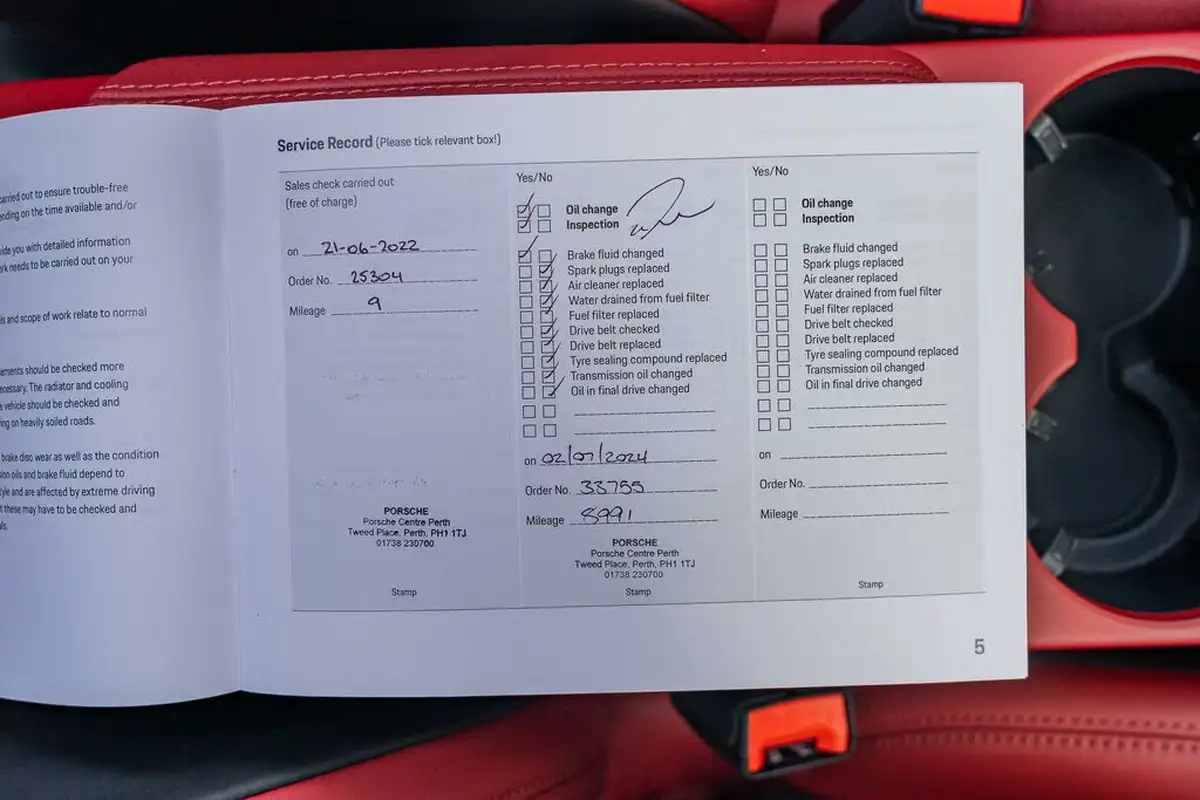 carried out to ensure trouble-free
ending on the time available and/or
vide you with detailed information
rk needs to be carried out on your
is and scope of work relate to normal
ements should be checked more
ecessary. The radiator and cooling
e vehicle should be checked and
ing on heavily soiled roads.
brake disc wear as well as the condition
sion oils and brake fluid depend to
tyle and are affected by extreme driving
t these may have to be checked and
als.
Service Record (Please tick relevant box!)
Sales check carried out
(free of charge)
on 21-06-2022
Order No. 25304
Mileage 9
PORSCHE
Porsche Centre Perth
Tweed Place, Perth, PH1 1TJ
01738 230700
Stamp
Yes/No
Oil change
Inspection
Brake fluid changed
Spark plugs replaced
Air cleaner replaced
Water drained from fuel filter
Fuel filter replaced
Drive belt checked
Drive belt replaced
Tyre sealing compound replaced
Transmission oil changed
Oil in final drive changed
on 02/07/2024
Order No. 33755
Mileage 8991
PORSCHE
Porsche Centre Perth
Tweed Place, Perth, PH1 1TJ
01738 230700
Stamp
Yes/No
Oil change
Inspection
Brake fluid changed
Spark plugs replaced
Air cleaner replaced
Water drained from fuel filter
Fuel filter replaced
Drive belt checked
Drive belt replaced
Tyre sealing compound replaced
Transmission oil changed
Oil in final drive changed
on
Order No.
Mileage
Stamp
5